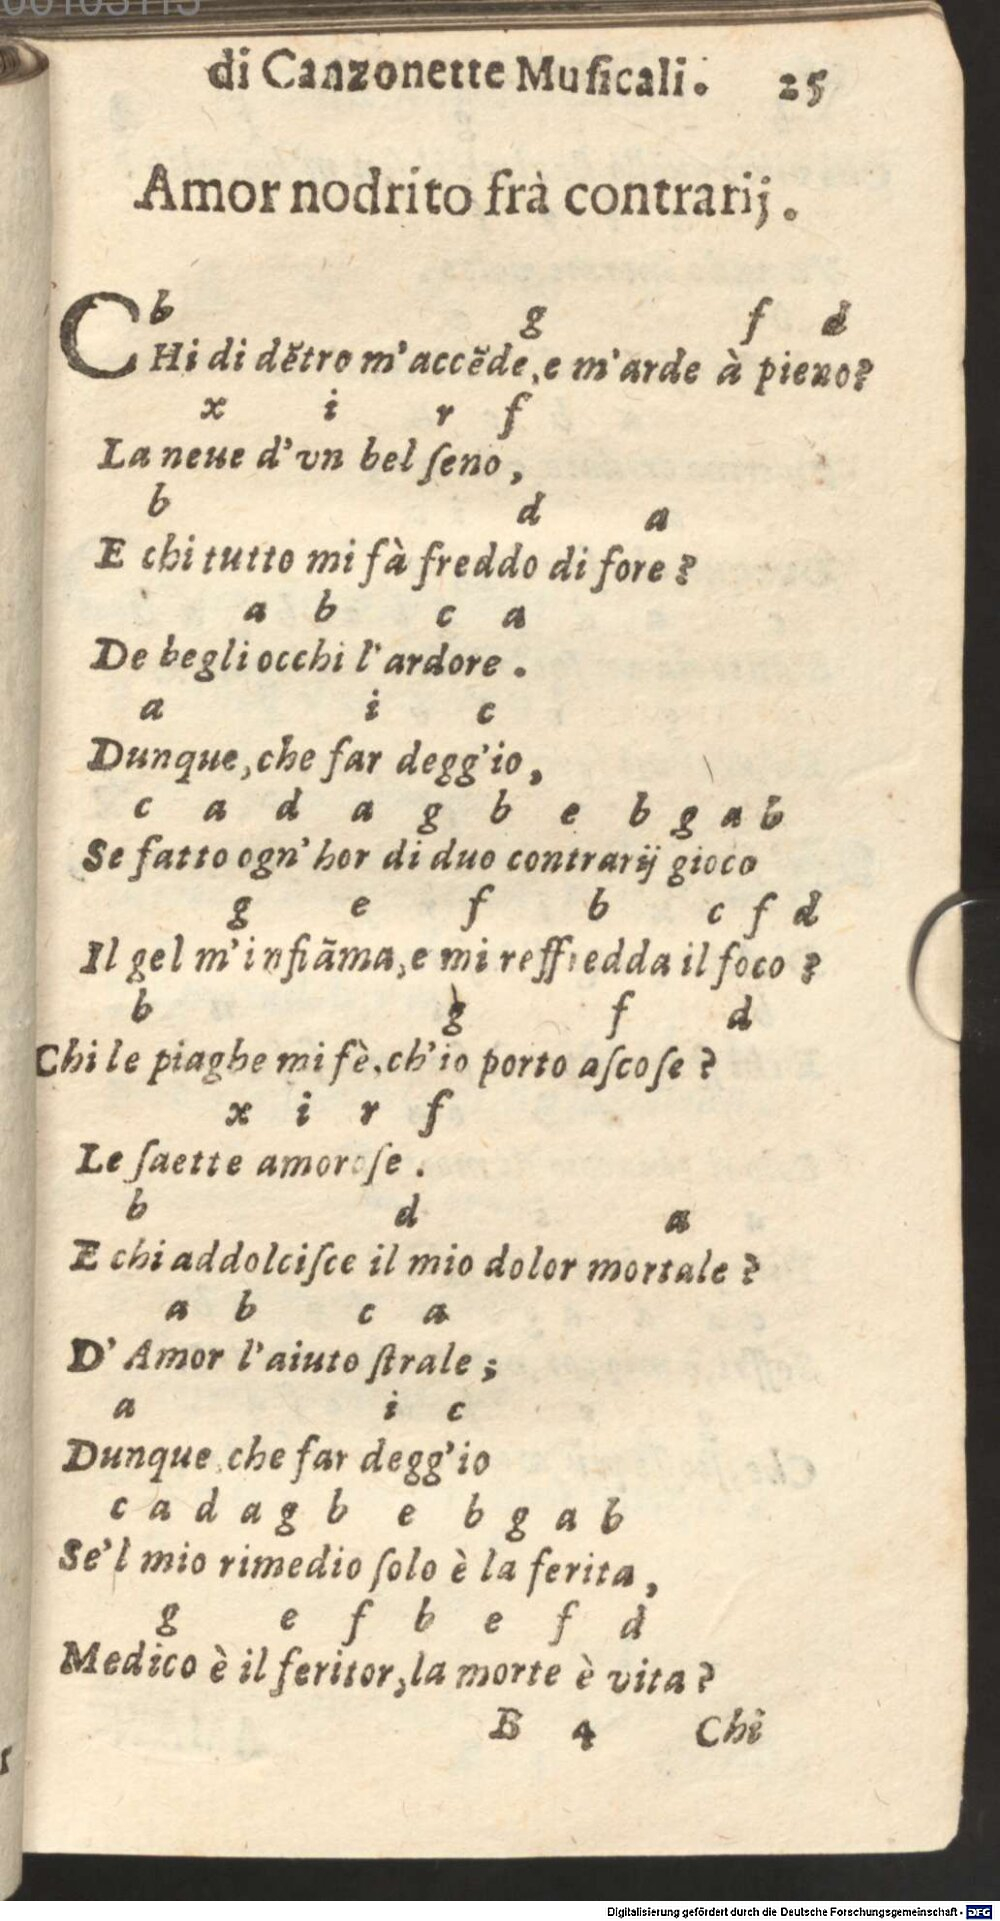 00103113
di Canzonette Muſicali. 25
Amor nodrito frà contrarij.
b g f d
CHi di dẽtro m'accẽde, e m'arde à pieno?
x i r f
La neue d'vn bel ſeno,
b d a
E chi tutto mi fà freddo di fore?
a b c a
De begli occhi l'ardore.
a i c
Dunque, che far degg'io,
c a d a g b e b g a b
Se fatto ogn'hor di duo contrarij gioco
g e f b c f d
Il gel m'infiãma, e mi reffredda il foco?
b g f d
Chi le piaghe mi fè, ch'io porto aſcoſe?
x i r f
Le ſaette amoroſe.
b d a
E chi addolciſce il mio dolor mortale?
a b c a
D'Amor l'aiuto ſtrale;
a i c
Dunque, che far degg'io
c a d a g b e b g a b
Se'l mio rimedio ſolo è la ferita,
g e f b e f d
Medico è il feritor, la morte è vita?
B 4 Chi
Digitalisierung gefördert durch die Deutsche Forschungsgemeinschaft - DFG